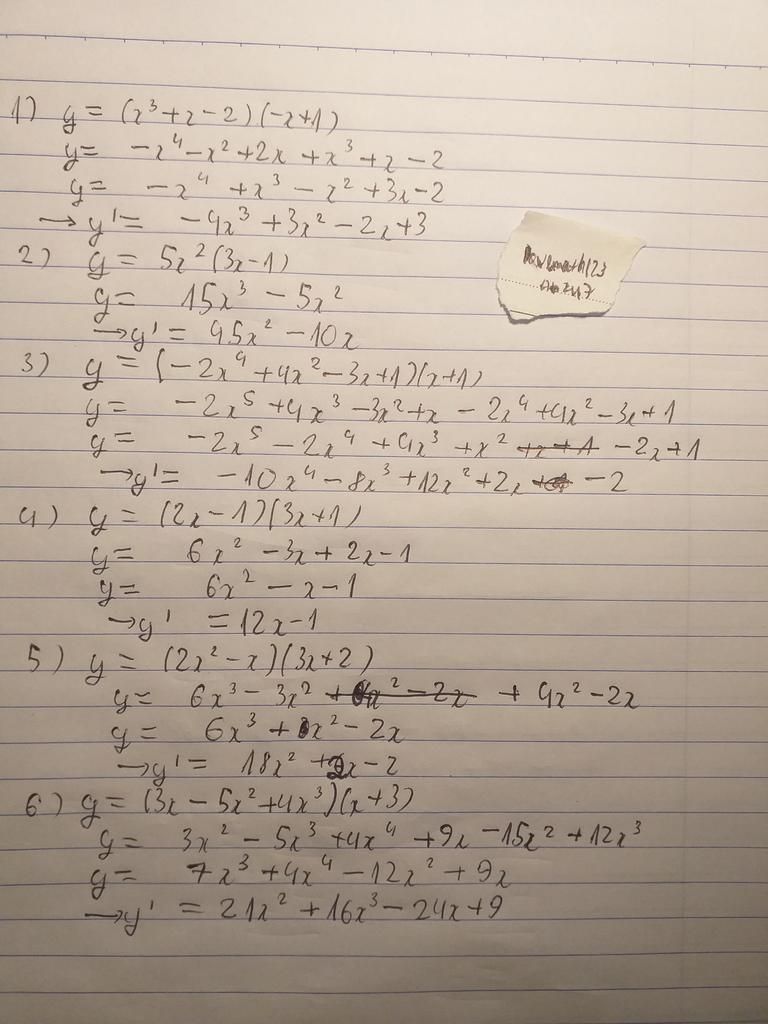 1) y = (x³+x-2)(-x+1)
y= -x⁴-x²+2x+x³+x-2
y= -x⁴+x³-x²+3x-2
→y'= -4x³+3x²-2x+3
2) y = 5x²(3x-1)
y= 15x³-5x²
→y'= 45x²-10x
3) y = (-2x⁴+4x²-3x+1)(x+1)
y= -2x⁵+4x³-3x²+x-2x⁴+4x²-3x+1
y= -2x⁵-2x⁴+4x³+x² +x+1 -2x+1
→y'= -10x⁴-8x³+12x²+2x -2
4) y = (2x-1)(3x+1)
y= 6x²-3x+2x-1
y= 6x²-x-1
→y' =12x-1
5) y = (2x²-x)(3x+2)
y= 6x³-3x² +4x²-2x
y= 6x³+x²-2x
→y'= 18x²+2x-2
6) y=(3x-5x²+4x³)(x+3)
y= 3x²-5x³+4x⁴+9x-15x²+12x³
y= 7x³+4x⁴-12x²+9x
→y' =21x²+16x³-24x+9